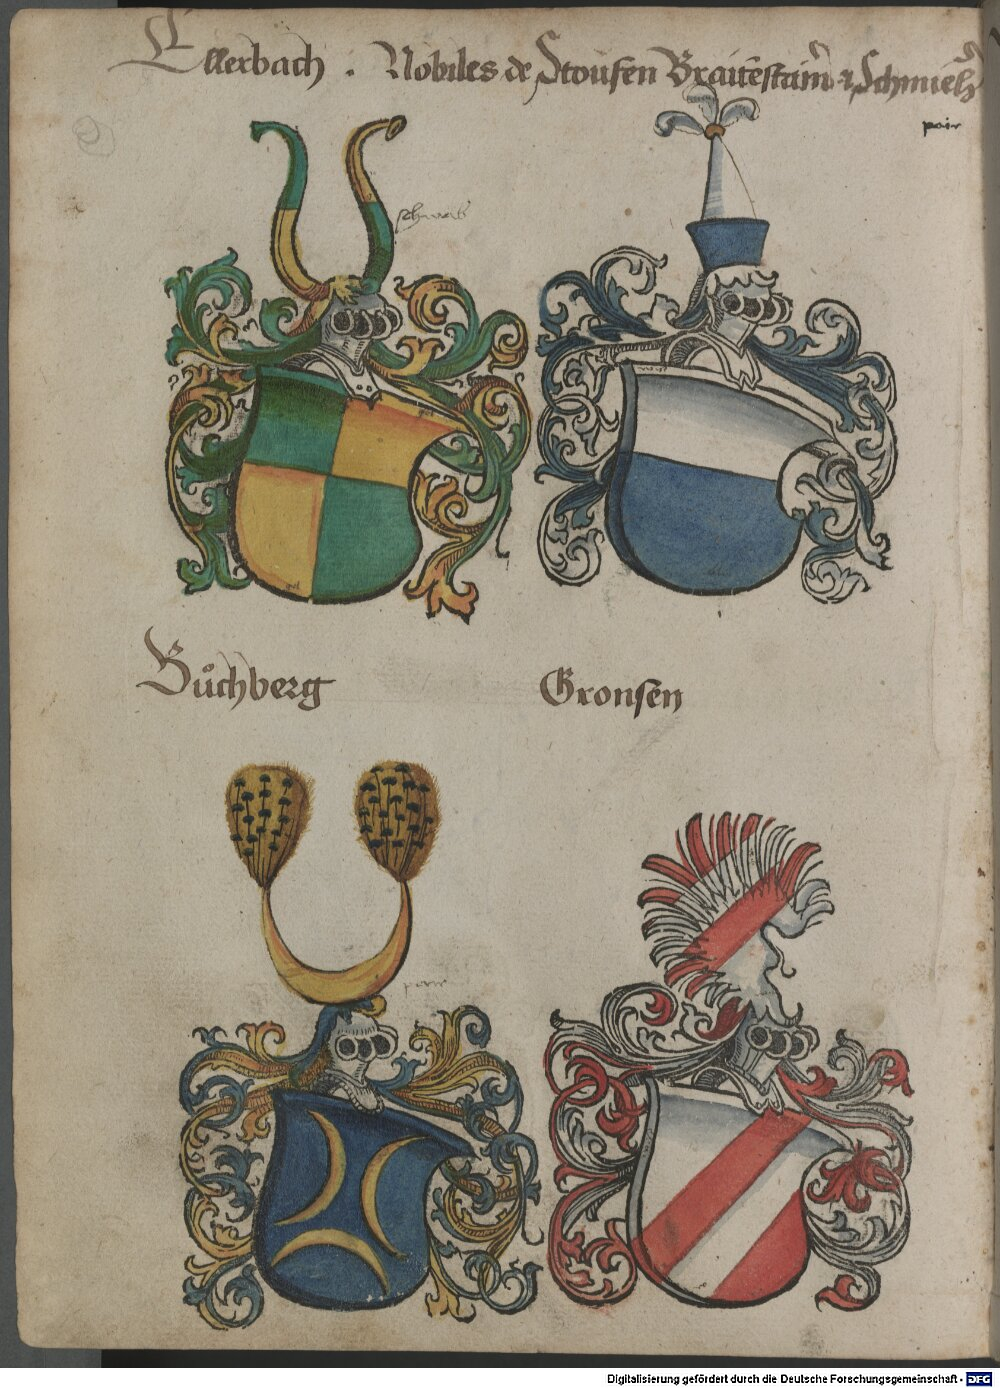 Ellerbach . Nobiles de Stoufen Braitēstain & Schmieh
pair
schwab
Bůchberg
Gronsen
pair
Digitalisierung gefördert durch die Deutsche Forschungsgemeinschaft - DFG